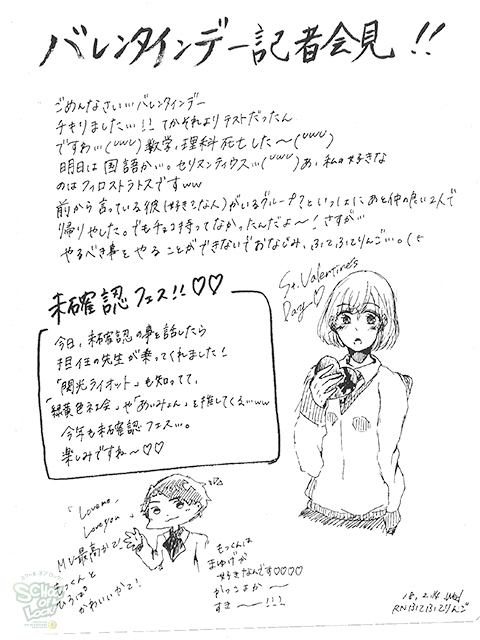 バレンタインデー記者会見 !!
ごめんなさい…バレンタインデー
チキりました…!! てかそれよりテストだったん
ですわ…(´༎ຶД༎ຶ`) 数学、理科死亡した〜
明日は国語かぃ。セリヌンティウス… あ、私の好きな
のはフィロストラトスですww
前から言っている彼(好きな人)がいるグループ?といっしょにあと仲の良い2人で
帰りやした。でもチョコ持ってなかったんだよ〜! さすが…
やるべき事をやることができないでおなじみ、ふてふてりんご…。
St. Valentine's
Day♡
未確認フェス!!♡♡
今日、未確認の事を話したら
担任の先生が乗ってくれました!
「閃光ライオット」も知ってて、
「緑黄色社会」や「あいみょん」を推してくるぃww
今年も未確認フェス…。
楽しみですね〜♡♡
「Love me,
Love you」
MV最高かて!
もっくんと
ひろぱの
かわいいかて!
もっくんは
まゆげが
好きなんです♡♡♡♡
かっこよか〜
すき〜!!!
18. 2. 14 Wed
RNふてふてりんご
スクールオブロック!
SCHOOL
OF
LOCK!